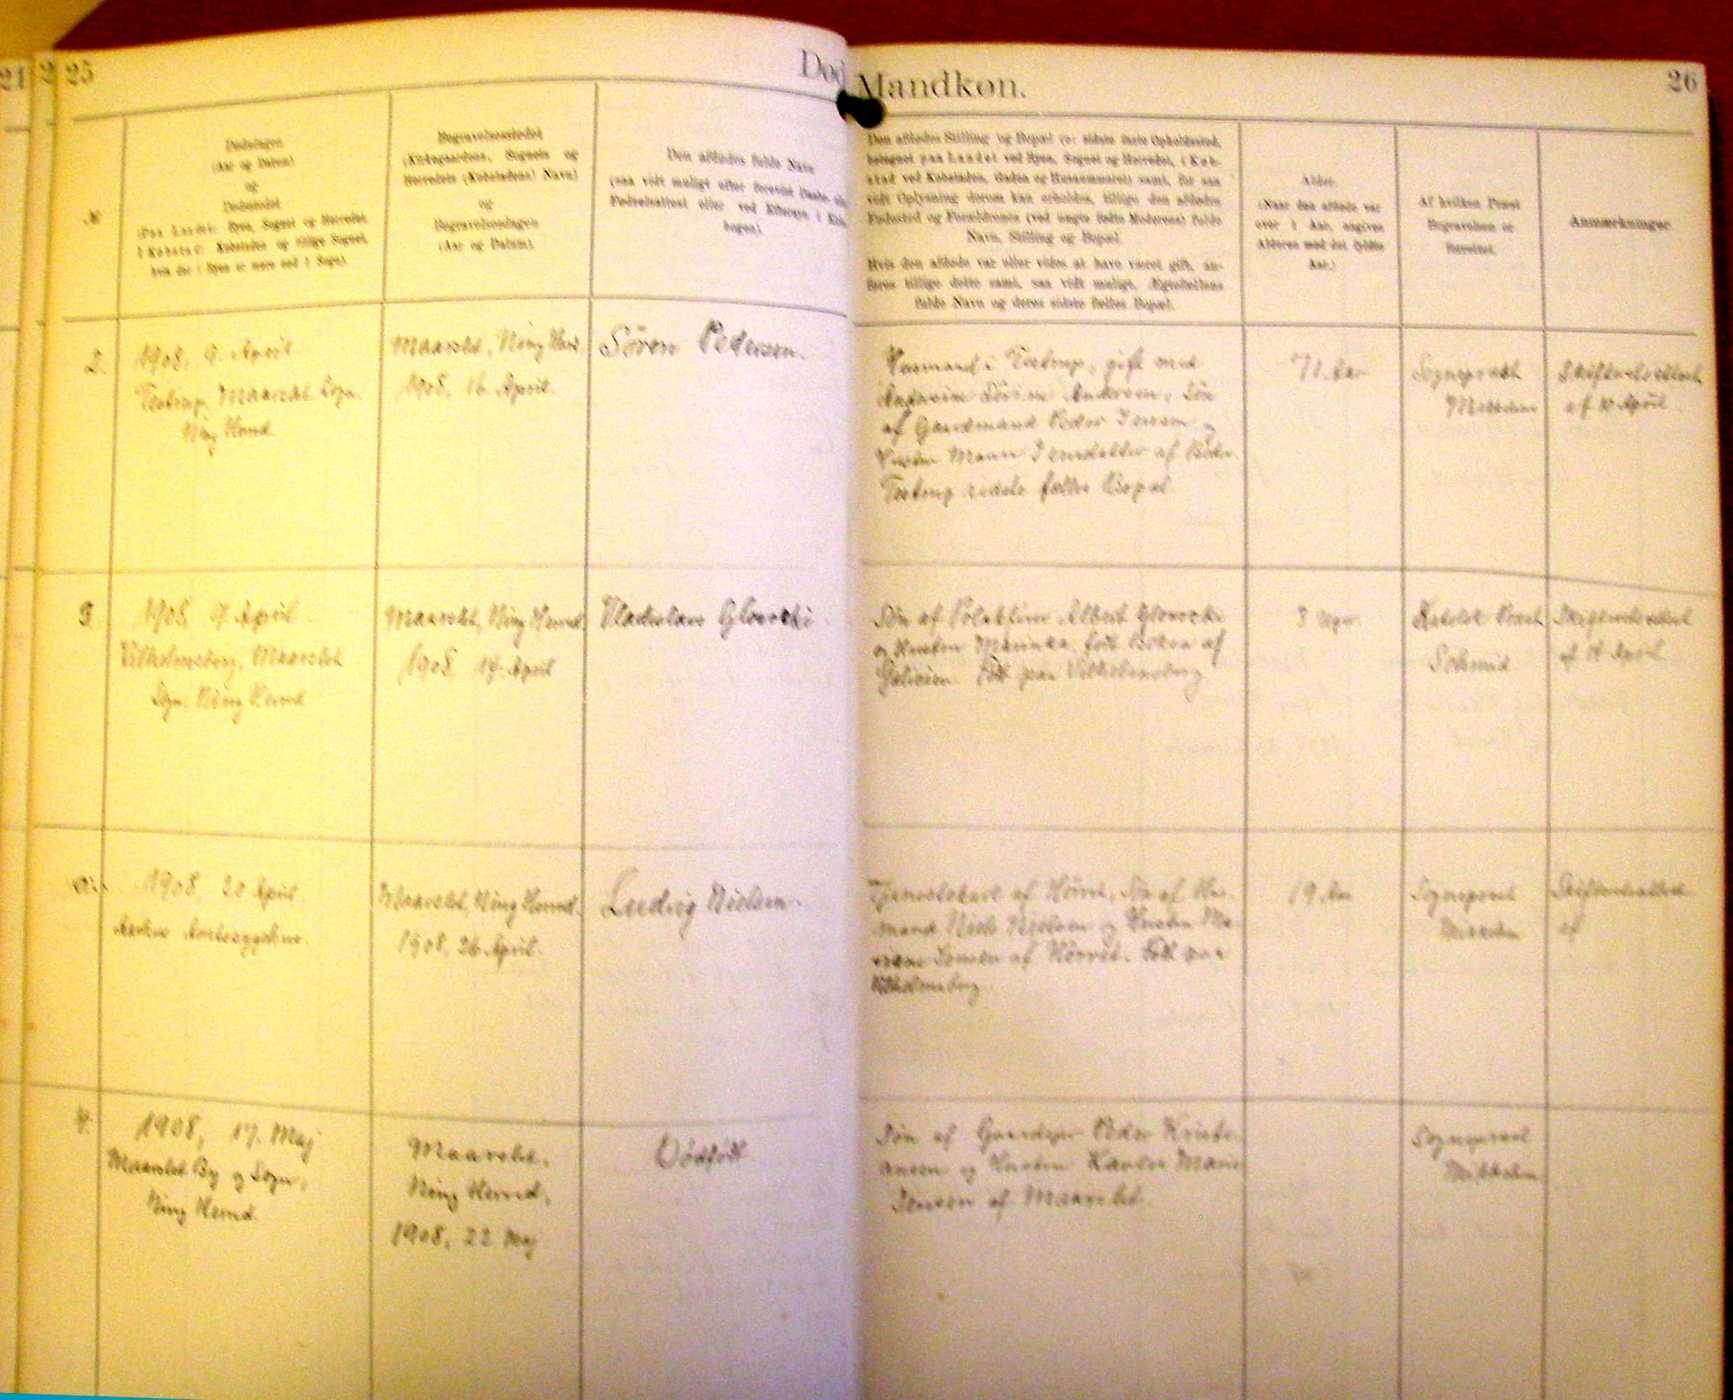 21 2 25
Død
Mandkøn.
26
№
Dødsdagen
(Aar og Datum)
og
Dødsstedet
(Paa Landet: Byen, Sognet og Herredet,
i Købstad: Købstaden og tillige Sognet,
hvis der i Byen er mere end 1 Sogn).
Begravelsesstedet
(Kirkegaardens, Sognets og
Herredets (Købstadens) Navn)
og
Begravelsesdagen
(Aar og Datum).
Den afdødes fulde Navn
(saa vidt muligt efter forevist Daabs- eller
Fødselsattest eller ved Eftersyn i Kirke-
bogen).
Den afdødes Stilling og Bopæl (o: sidste faste Opholdssted,
betegnet paa Landet ved Byen, Sognet og Herredet, i Køb-
stad ved Købstaden, Gaden og Husnummeret) samt, for saa
vidt Oplysning derom kan erholdes, tillige den afdødes
Fødested og Forældrenes (ved uægte fødte Moderens) fulde
Navn, Stilling og Bopæl.
Hvis den afdøde var eller vides at have været gift, an-
føres tillige dette samt, saa vidt muligt, Ægtefællens
fulde Navn og deres sidste fælles Bopæl.
Alder.
(Naar den afdøde var
over 1 Aar, angives
Alderen med det fyldte
Aar.)
Af hvilken Præst
Begravelsen er
forrettet.
Anmærkninger.
2.
1908, 9. April
Testrup, Maarslet Sogn,
Ning Herred
Maarslet, Ning Herred
1908, 16. April.
Søren Pedersen.
Husmand i Testrup, gift med
Andersine Andersen, Søn
af Gaardmand Peder Jensen og
Hustru Maren Jensdatter af
Testrup sidste fælles Bopæl
71 Aar
Sognepræst
Mikkelsen
Skifteretsattest
af 10 April
3.
1908, 9 April
Vilhelmsborg, Maarslet
Sogn, Ning Herred
Maarslet, Ning Herred
1908, 14. April
Vladislav
Søn af Albert
og Hustru Marinka født af
Galicien. Født paa Vilhelmsborg
8 Uger
Katolsk Præst
Schmid
Skifteretsattest
af April
1908, 20 April.
Aarhus Amtssygehus.
Maarslet, Ning Herred.
1908, 26. April.
Ludvig Nielsen.
Tjenestekarl af Hørret, Søn af Hus-
mand Niels Nielsen og Hustru Ma-
Jensen af Hørret. Født paa
Vilhelmsborg
19 Aar
Sognepræst
Mikkelsen
Skifteretsattest
af
4.
1908, 17. Maj
Maarslet By og Sogn,
Ning Herred.
Maarslet,
Ning Herred,
1908, 22 Maj
Dødfødt
Søn af Gaardejer Peder Kristi-
ansen og Hustru Karen Marie
Jensen af Maarslet.
Sognepræst
Mikkelsen